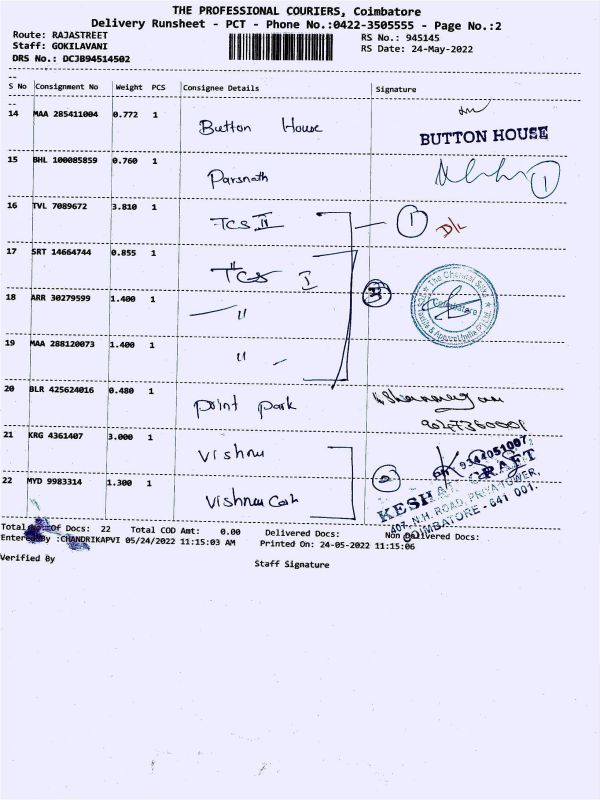 THE PROFESSIONAL COURIERS, Coimbatore
Delivery Runsheet - PCT - Phone No.:0422-3505555 - Page No.:2
Route: RAJASTREET
RS No.: 945145
Staff: GOKILAVANI
RS Date: 24-May-2022
DRS No.: DCJB94514502
S No Consignment No Weight PCS Consignee Details Signature
14 MAA 285411004 0.772 1 Button House
BUTTON HOUSE
15 BHL 100085859 0.760 1 Parsnath
1
16 TVL 7089672 3.810 1 TCS II
1
D/L
17 SRT 14664744 0.855 1 TCS I
18 ARR 30279599 1.400 1 "
The Chennai Silks
Coimbatore
19 MAA 288120073 1.400 1 "
20 BLR 425624016 0.480 1 Print Park
21 KRG 4361407 3.000 1 Vishnu
22 MYD 9983314 1.300 1 Vishnu Cash
2
PH: 9344051007
KESHAV CRAFT
407, N.H. ROAD, PRIYA TOWER,
COIMBATORE - 641 001.
Total No. Of Docs: 22 Total COD Amt: 0.00 Delivered Docs: Non Delivered Docs:
Entered By :CHANDRIKAPVI 05/24/2022 11:15:03 AM Printed On: 24-05-2022 11:15:06
Verified By
Staff Signature